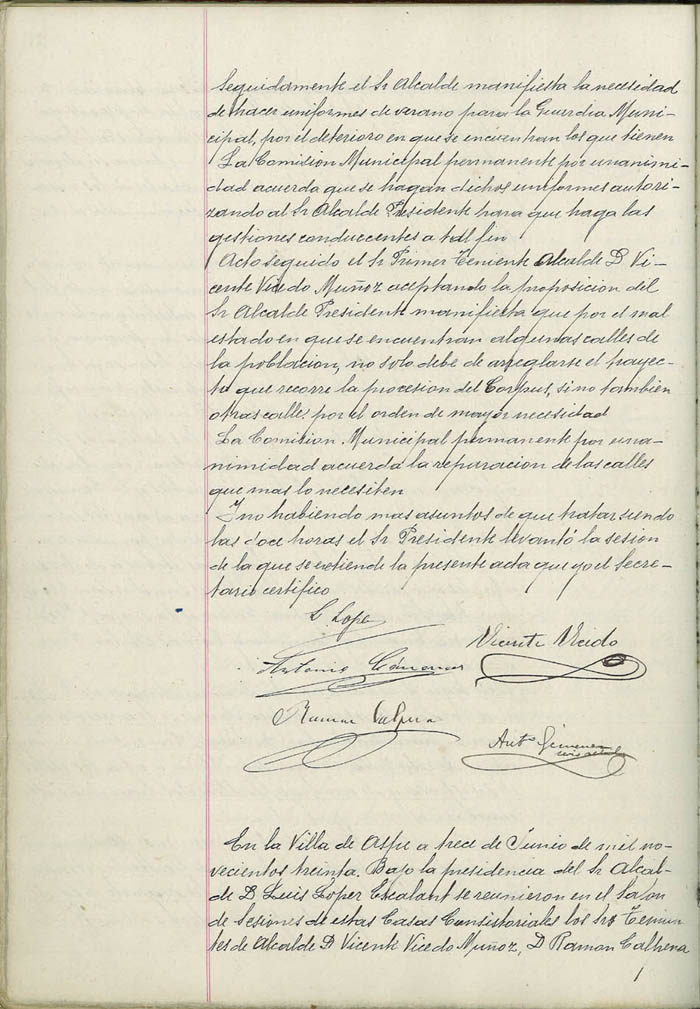 Seguidamente el Sr Alcalde manifiesta la necesidad
de hacer uniformes de verano para la Guardia Muni-
cipal, por el deterioro en que se encuentran los que tienen
La Comision Municipal permanente por unanimi-
dad acuerda que se hagan dichos uniformes autori-
zando al Sr Alcalde Presidente para que haga las
gestiones conducentes a tal fin
Acto seguido el Sr Primer Teniente Alcalde D Vi-
cente Vicedo Muñoz aceptando la proposicion del
Sr Alcalde Presidente manifiesta que por el mal
estado en que se encuentran algunas calles de
la poblacion, no solo debe de arreglarse el trayec-
to que recorre la procesion del Corpus, sino tambien
otras calles por el orden de mayor necesidad
La Comision Municipal permanente por una-
nimidad acuerda la reparacion de las calles
que mas lo necesiten
Y no habiendo mas asuntos de que tratar siendo
las doce horas el Sr Presidente levantó la sesion
de la que se extiende la presente acta que yo el Secre-
tario certifico
L. Lopez
Vicente Vicedo
Antonio
Ramon Calpena
Anto Gimenez
En la Villa de Aspe a trece de Junio de mil no-
vecientos treinta. Bajo la presidencia del Sr Alcal-
de D Luis Lopez Escalant se reunieron en el Salon
de Sesiones de estas Casas Consistoriales los Srs Tenien-
tes de Alcalde D Vicente Vicedo Muñoz, D Ramon Calpena